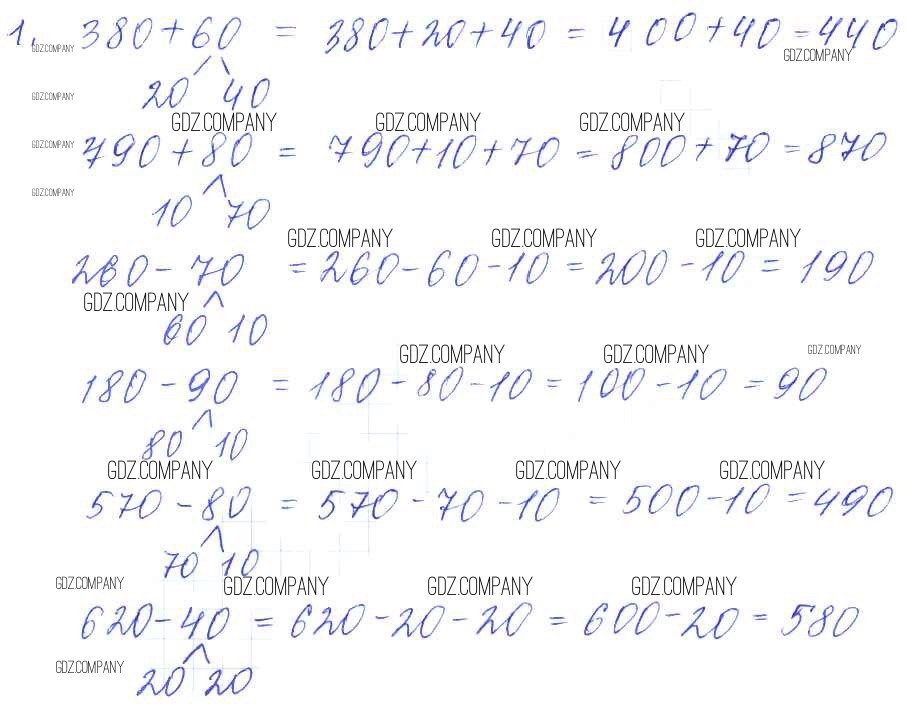 1. 380+60 = 380+20+40 = 400+40=440
GDZ.COMPANY GDZ.COMPANY
GDZ.COMPANY 20 40
GDZ.COMPANY GDZ.COMPANY GDZ.COMPANY
GDZ.COMPANY 790+80 = 790+10+70 = 800+70 = 870
GDZ.COMPANY 10 70
GDZ.COMPANY GDZ.COMPANY GDZ.COMPANY
260-70 = 260-60-10 = 200-10 = 190
GDZ.COMPANY
60 10
GDZ.COMPANY GDZ.COMPANY GDZ.COMPANY
180-90 = 180-80-10 = 100-10 = 90
80 10
GDZ.COMPANY GDZ.COMPANY GDZ.COMPANY GDZ.COMPANY
570-80 = 570-70-10 = 500-10 = 490
70 10
GDZ.COMPANY GDZ.COMPANY GDZ.COMPANY GDZ.COMPANY
620-40 = 620-20-20 = 600-20 = 580
GDZ.COMPANY 20 20